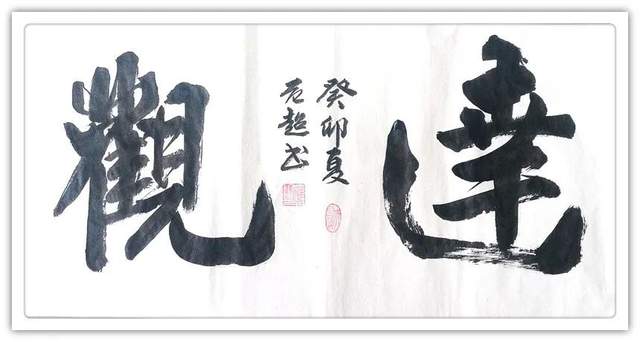 達觀
癸卯夏
超书